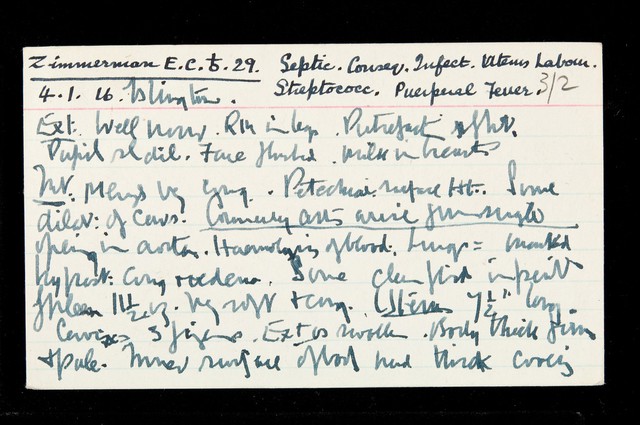 Zimmerman E.C. 29. Septic. Conseq. Infect. Uterus Labour.
4.1.16. Islington. Streptococc. Puerperal Fever. 3/2
Ext. Well nour. R.M. in legs. Putrefact
Pupil sl. dil. Face flushed. milk in breasts
Int. Mengs v. cong. Petechiae surface Ht. Some
dilat: of cavs. Coronary arts arise from single
opening in aorta. Haemolysis of blood. Lungs = marked
hypost: cong + oedema. Some clear fluid in perit
Spleen 11½ oz. v. soft + cong. Uterus 7½" long
Cervix 3 fingers. Ext os swollen. Body thick firm
+ pale. Inner surface of body had thick covering